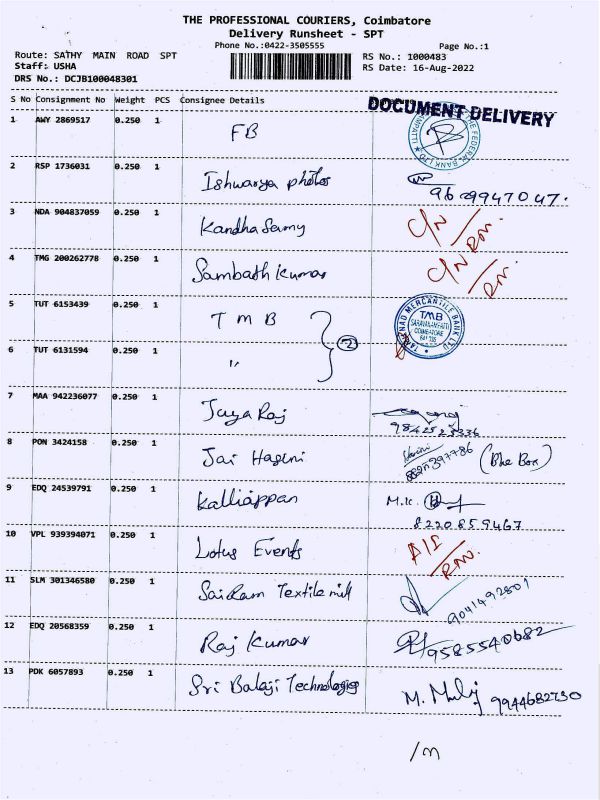 THE PROFESSIONAL COURIERS, Coimbatore
Delivery Runsheet - SPT
Phone No.:0422-3505555
Page No.:1
Route: SATHY MAIN ROAD SPT
Staff: USHA
DRS No.: DCJB100048301
RS No.: 1000483
RS Date: 16-Aug-2022
S No Consignment No Weight PCS Consignee Details
DOCUMENT DELIVERY
1 AWY 2869517 0.250 1 FB
THE FEDERAL BANK LTD
2 RSP 1736031 0.250 1 Ishwarya photos
9629947047.
3 NDA 904837059 0.250 1 Kandha Samy C/N RN.
4 TMG 200262778 0.250 1 Sambath Kumar C/N RN.
5 TUT 6153439 0.250 1 TMB
2
TAMILNAD MERCANTILE BANK LTD
TMB
SARAVANAMPATTI
COIMBATORE
6 TUT 6131594 0.250 1 "
7 MAA 942236077 0.250 1 Jaya Raj
8 PON 3424158 0.250 1 Jai Hasini
9 EDQ 24539791 0.250 1 Kalliappan M.K.
8220859467
10 VPL 939394071 0.250 1 Lotus Events A/S RN.
11 SLM 301346580 0.250 1 Sairam Textile mill
9041492801
12 EDQ 20568359 0.250 1 Raj Kumar 9585540682
13 PDK 6057893 0.250 1 Sri Balaji Technologies 9944682730
/m